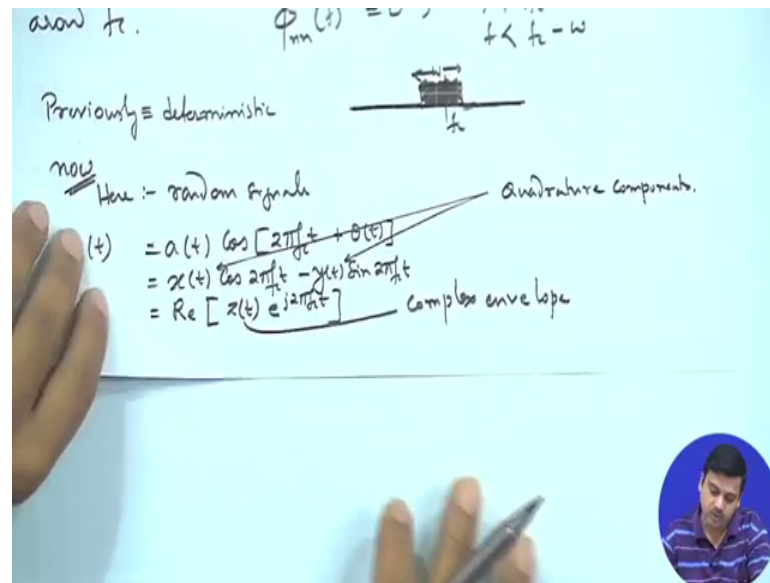 fc.
Φnn (f) = 0,
f < fc - w
Previously ≡ deterministic
w
fc
now
Here :- random signals
Quadrature components.
(t) = a(t) cos [2πfct + θ(t)]
= x(t) cos 2πfct - y(t) sin 2πfct
= Re [ z(t) e^j2πfct ]
complex envelope